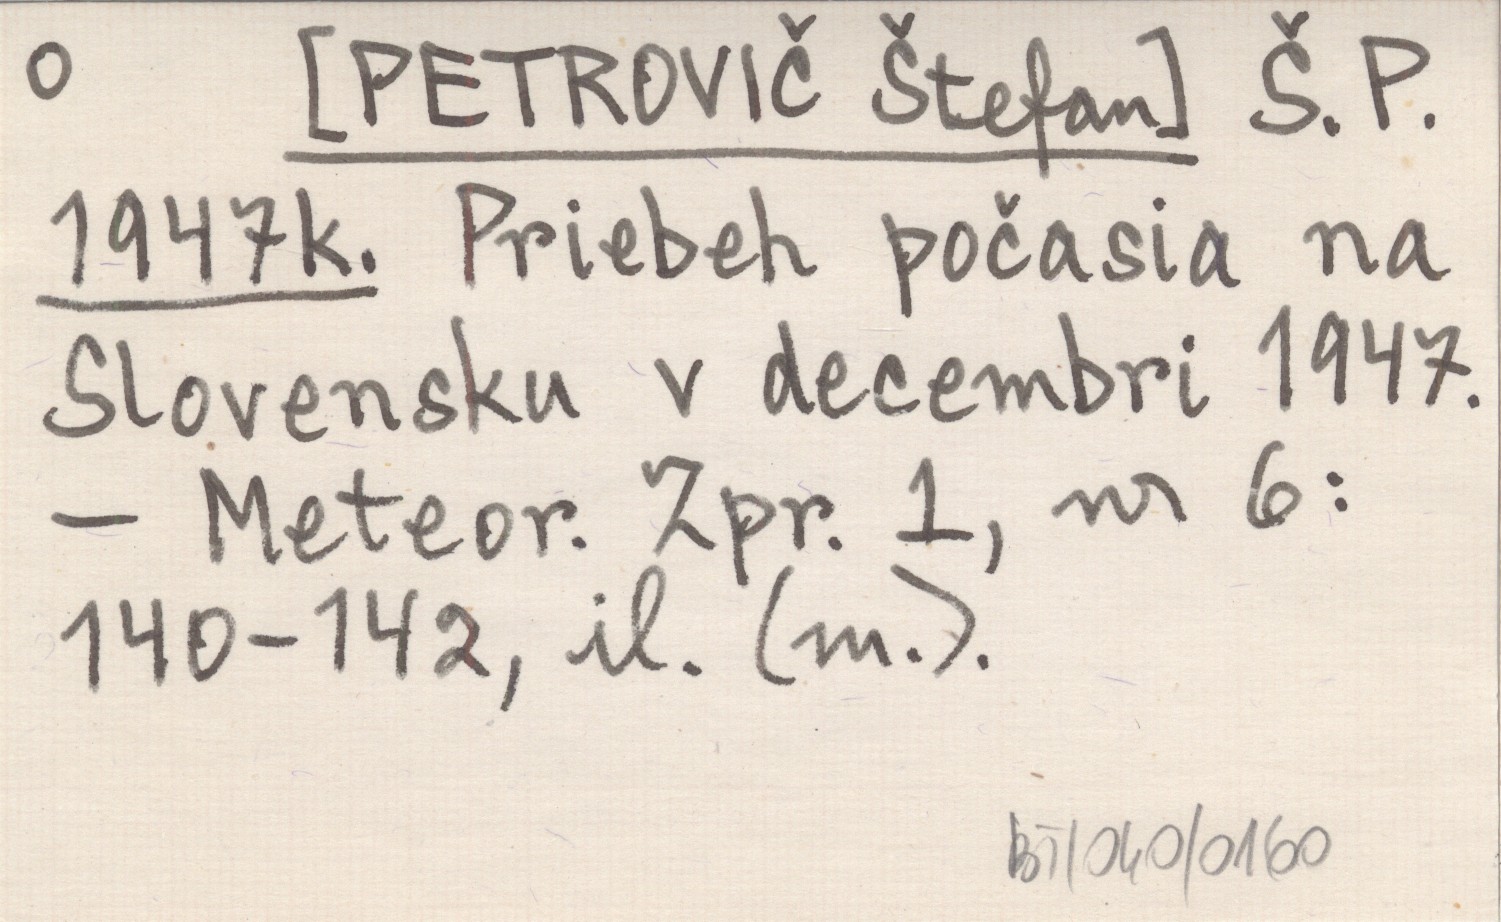 o [PETROVIČ Štefan] Š.P.
1947k. Priebeh počasia na
Slovensku v decembri 1947.
– Meteor. Zpr. 1, nr 6:
140-142, il. (m.).
BT/040/0160